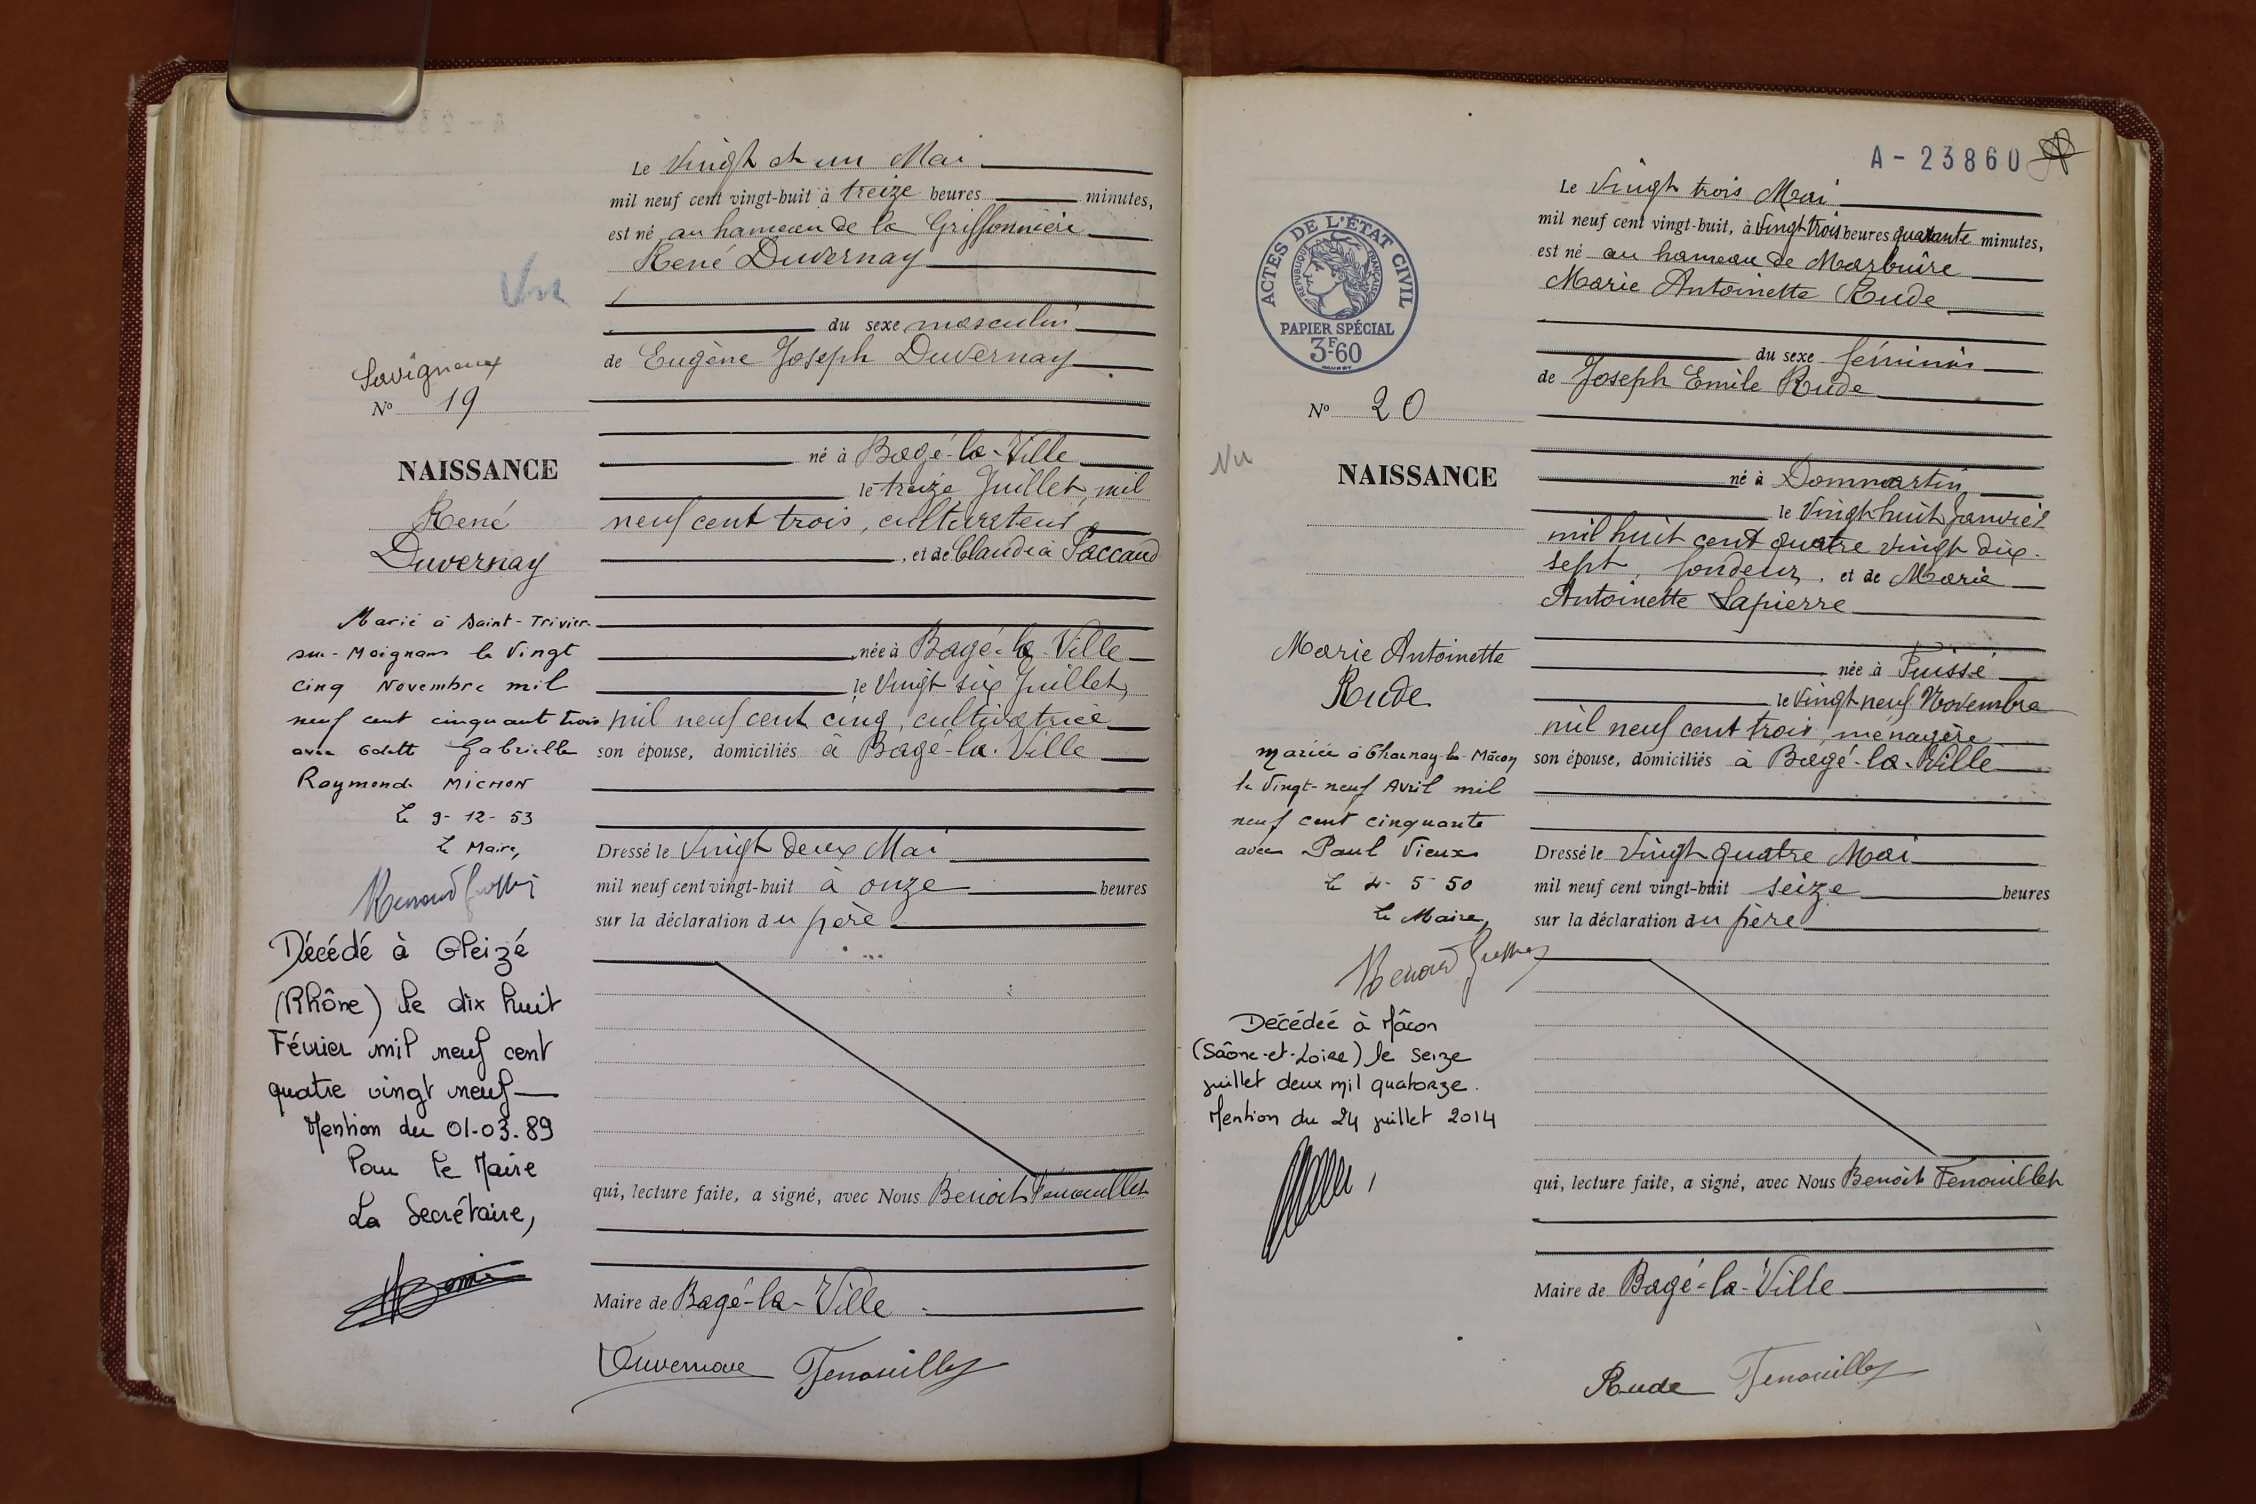 Le Vingt et un Mai
mil neuf cent vingt-huit à treize heures minutes,
est né au hameau de la Griffonnière
René Duvernay
du sexe masculin
de Eugène Joseph Duvernay
né à Bagé-la-Ville
le treize Juillet mil
neuf cent trois, cultivateur
, et de Claudia Paccaud
née à Bagé-la-Ville
le Vingt six Juillet,
mil neuf cent cinq, cultivatrice
son épouse, domiciliés à Bagé-la-Ville
Dressé le Vingt deux Mai
mil neuf cent vingt-huit à onze heures
sur la déclaration du père
qui, lecture faite, a signé, avec Nous Benoit Fenouillet
Maire de Bagé-la-Ville
Fenouillet
Savigneux
N° 19
NAISSANCE
René
Duvernay
Marié à Saint-Trivier-
sur-Moignans le Vingt
cinq Novembre mil
neuf cent cinquante trois
avec Odette Gabrielle
Raymonde MICHON
Le 9-12-53
Le Maire,
Décédé à Gleizé
(Rhône) le dix huit
Février mil neuf cent
quatre vingt neuf
Mention du 01-03-89
Pour le Maire
La Secrétaire,
A-23860
Le Vingt trois Mai
mil neuf cent vingt-huit, à Vingt trois heures quarante minutes,
est né au hameau de Marbuire
Marie Antoinette Rude
du sexe féminin
de Joseph Emile Rude
né à Dommartin
le Vingt huit Janvier
mil huit cent quatre vingt dix-
sept, fondeur, et de Marie
Antoinette Lapierre
née à Fuissé
le Vingt neuf Novembre
mil neuf cent trois, ménagère
son épouse, domiciliés à Bagé-la-Ville
Dressé le Vingt quatre Mai
mil neuf cent vingt-huit seize heures
sur la déclaration du père
qui, lecture faite, a signé, avec Nous Benoit Fenouillet
Maire de Bagé-la-Ville
Rude Fenouillet
ACTES DE L'ÉTAT CIVIL
RÉPUBLIQUE FRANÇAISE
PAPIER SPÉCIAL
3F60
N° 20
Vu
NAISSANCE
Marie Antoinette
Rude
Mariée à Charnay-les-Mâcon
le Vingt-neuf Avril mil
neuf cent cinquante
avec Paul Vieux
Le 4-5-50
Le Maire,
Décédée à Mâcon
(Saône-et-Loire) le seize
juillet deux mil quatorze.
Mention du 24 juillet 2014